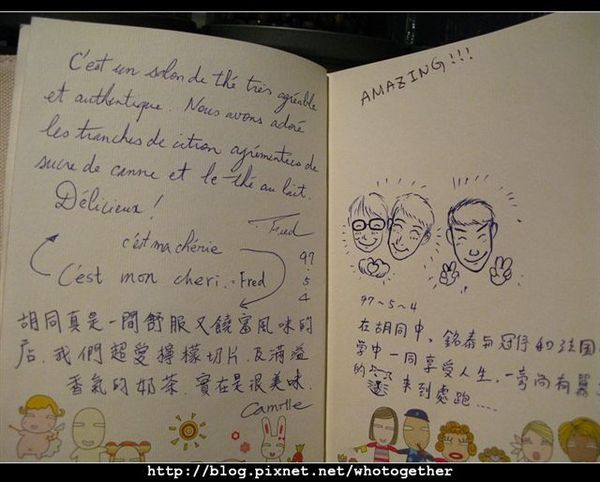 C'est un salon de thé très agréable
et authentique. Nous avons adoré
les tranches de citron agrémentées de
sucre de canne et le thé au lait.
Délicieux !
Fred
c'est ma chérie
C'est mon cheri. - Fred
97
5
4
胡同真是一間舒服又饒富風味的
店.我們超愛檸檬切片及滿溢
香氣的奶茶.實在是很美味.
Camille
AMAZING!!!
97~5~4
在胡同中,銘泰與冠伃的法國
學中一同享受人生,一旁尚有
的 來到處跑.....
http://blog.pixnet.net/whotogether